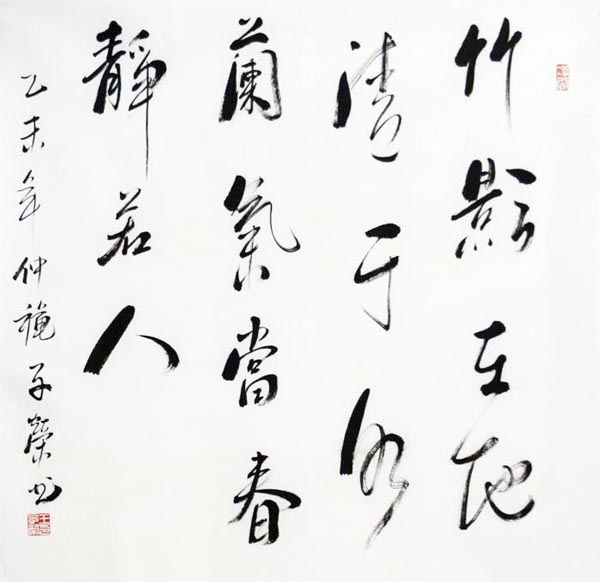 竹影在地
清于水
蘭氣當春
靜若人
乙未年仲穐子榮书